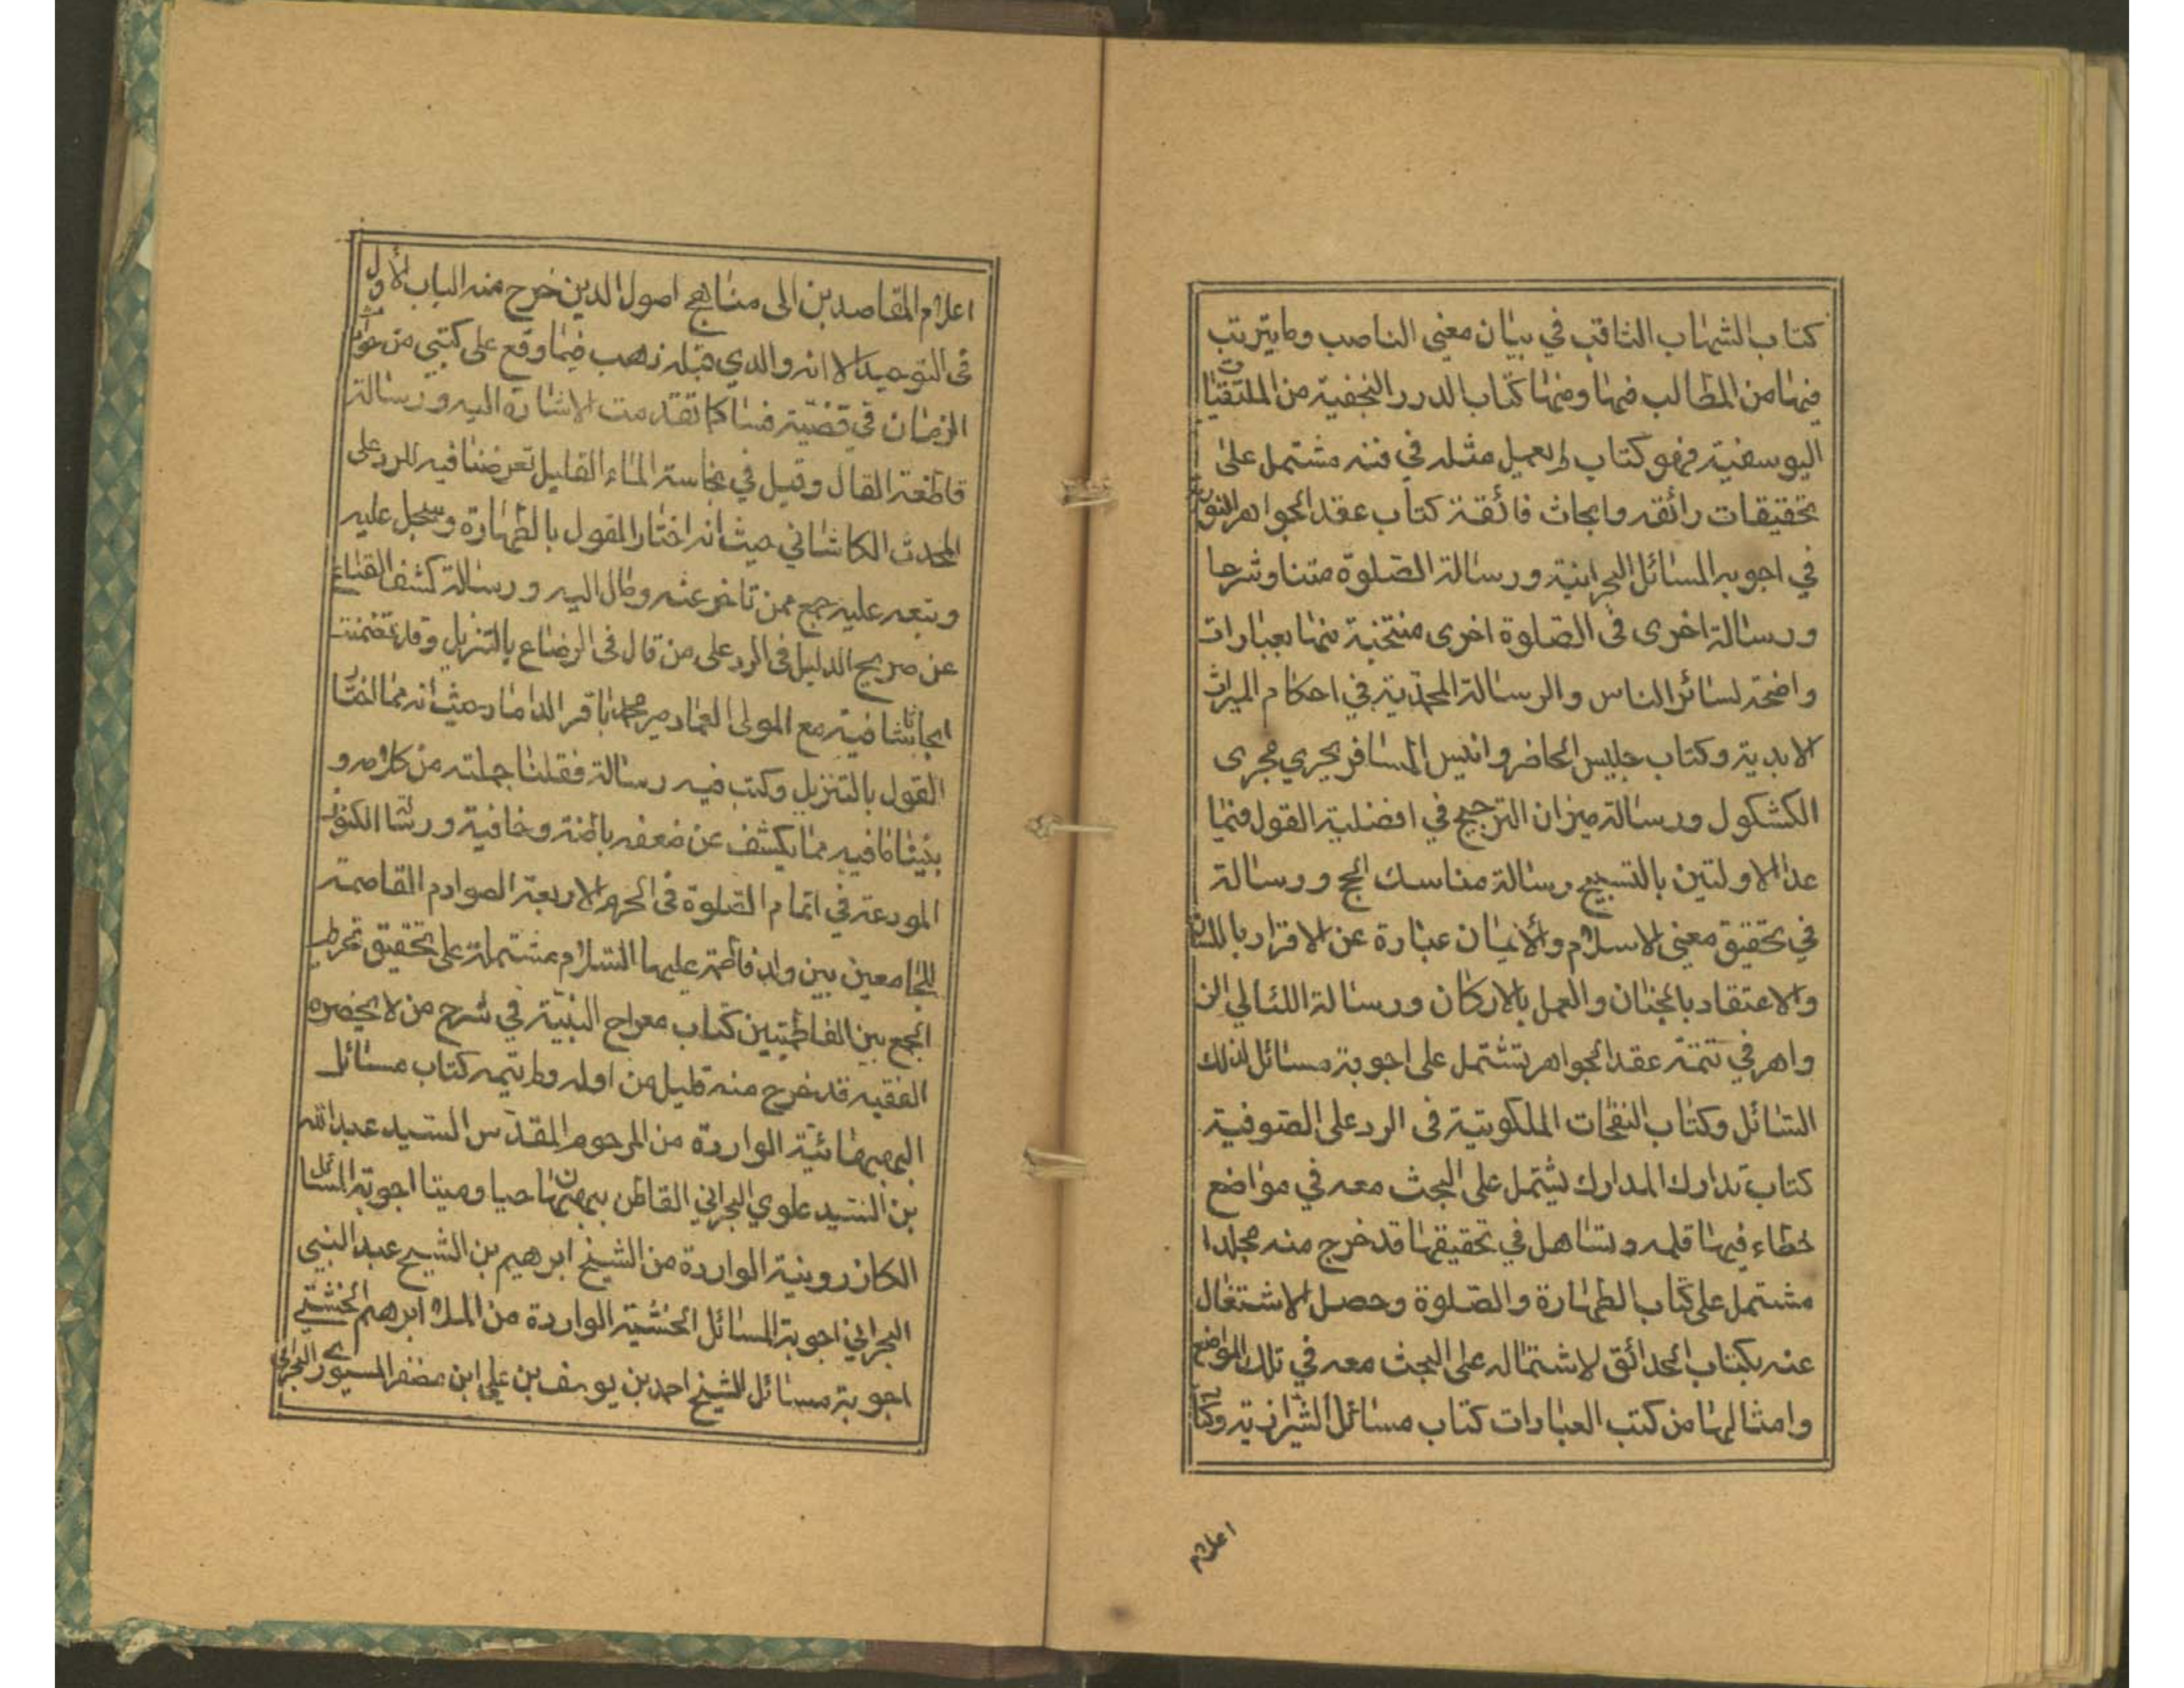 كتاب الشهاب الثاقب في بيان معنى الناصب وما يترتب
فيها من المطالب فيها ومنها كتاب الدرر النجفية من الملتقيات
اليوسفية فهو كتاب لم يعمل مثله في فنه مشتمل على
تحقيقات رائقه وابحاث فائقة كتاب عقد الجواهر النور
في اجوبه المسائل البحرانية ورسالة الصلوة متنا وشرحا
ورسالة اخرى في الصلوة اخرى منتخبة منها بعبارات
واضحة لسائر الناس والرسالة المحمدية في احكام الميراث
الابدية وكتاب جليس الحاضر وانيس المسافر يجري مجرى
الكشكول ورسالة ميزان الترجيح في افضلية القول فيما
عدا الاولتين بالتسبيح رسالة مناسك الحج ورسالة
في تحقيق معنى الاسلام والأيمان عبارة عن الاقرار باللسان
والاعتقاد بالجنان والعمل بالاركان ورسالة اللئالي الز
واهر في تتمة عقد الجواهر تشتمل على اجوبة مسائل لذلك
السائل وكتاب النفحات الملكوتية فى الرد على الصوفية
كتاب تدارك المدارك يشتمل على البحث معه في مواضع
خطاء فيها قلمه وتساهل في تحقيقها قد خرج منه مجلدا
مشتمل على كتاب الطهارة والصلوة وحصل الاشتغال
عنه بكتاب الحدائق لاشتماله على البحث معه في تلك المواضع
وامثالها من كتب العبارات كتاب مسائل الشيرازية وكتاب
اعلام
اعلام المقاصدين الى مناهج اصول الدين خرج منه الباب الأول
فى التوحيد الا انه والدي قبله ذهب فيما وقع على كتبي من حوادث
الزمان في قضية فسا كما تقدمت الاشارة اليه ورسالة
قاطعة القال وقيل في نجاسة الماء القليل تعرضنا فيه للرد على
المحدث الكاشاني حيث انه اختار القول بالطهارة وسجل عليه
وتبعه عليه جمع ممن تاخر عنه ومال اليه ورسالة كشف القناع
عن صريح الدليل فى الرد على من قال فى الرضاع بالتنزيل وقد تضمنت
ابحاثا شافية مع المولى العماد مير محمد باقر الداماد حيث انه مما اختار
القول بالتنزيل وكتب فيه رسالة فقلنا جملته من كلامه و
بيننا ما فيه مما يكشف عن ضعفه باطنه وخافية ورسالة الكنوز
المودعة في اتمام الصلوة فى الحرم الاربعة الصوادم القاصمة
للجامعين بين ولد فاطمة عليها السلام مشتملة على تحقيق تحريم
الجمع بين الفاطميتين كتاب معراج النبيه في شرح من لا يحضره
الفقيه قد خرج منه قليل من اوله ولم يتمه كتاب مسائل
البهبهانية الواردة من المرحوم المقدس السيد عبدالله
بن السيد علوي البحراني القاطن ببهبهان حيا وميتا اجوبة المسائل
الكازرونية الواردة من الشيخ ابرهيم بن الشيخ عبد النبي
البحراني اجوبة المسائل الخشتية الواردة من الملا ابرهيم الخشتي
اجوبة مسائل الشيخ احمد بن يوسف بن علي ابن مضفر السيوري البحراني